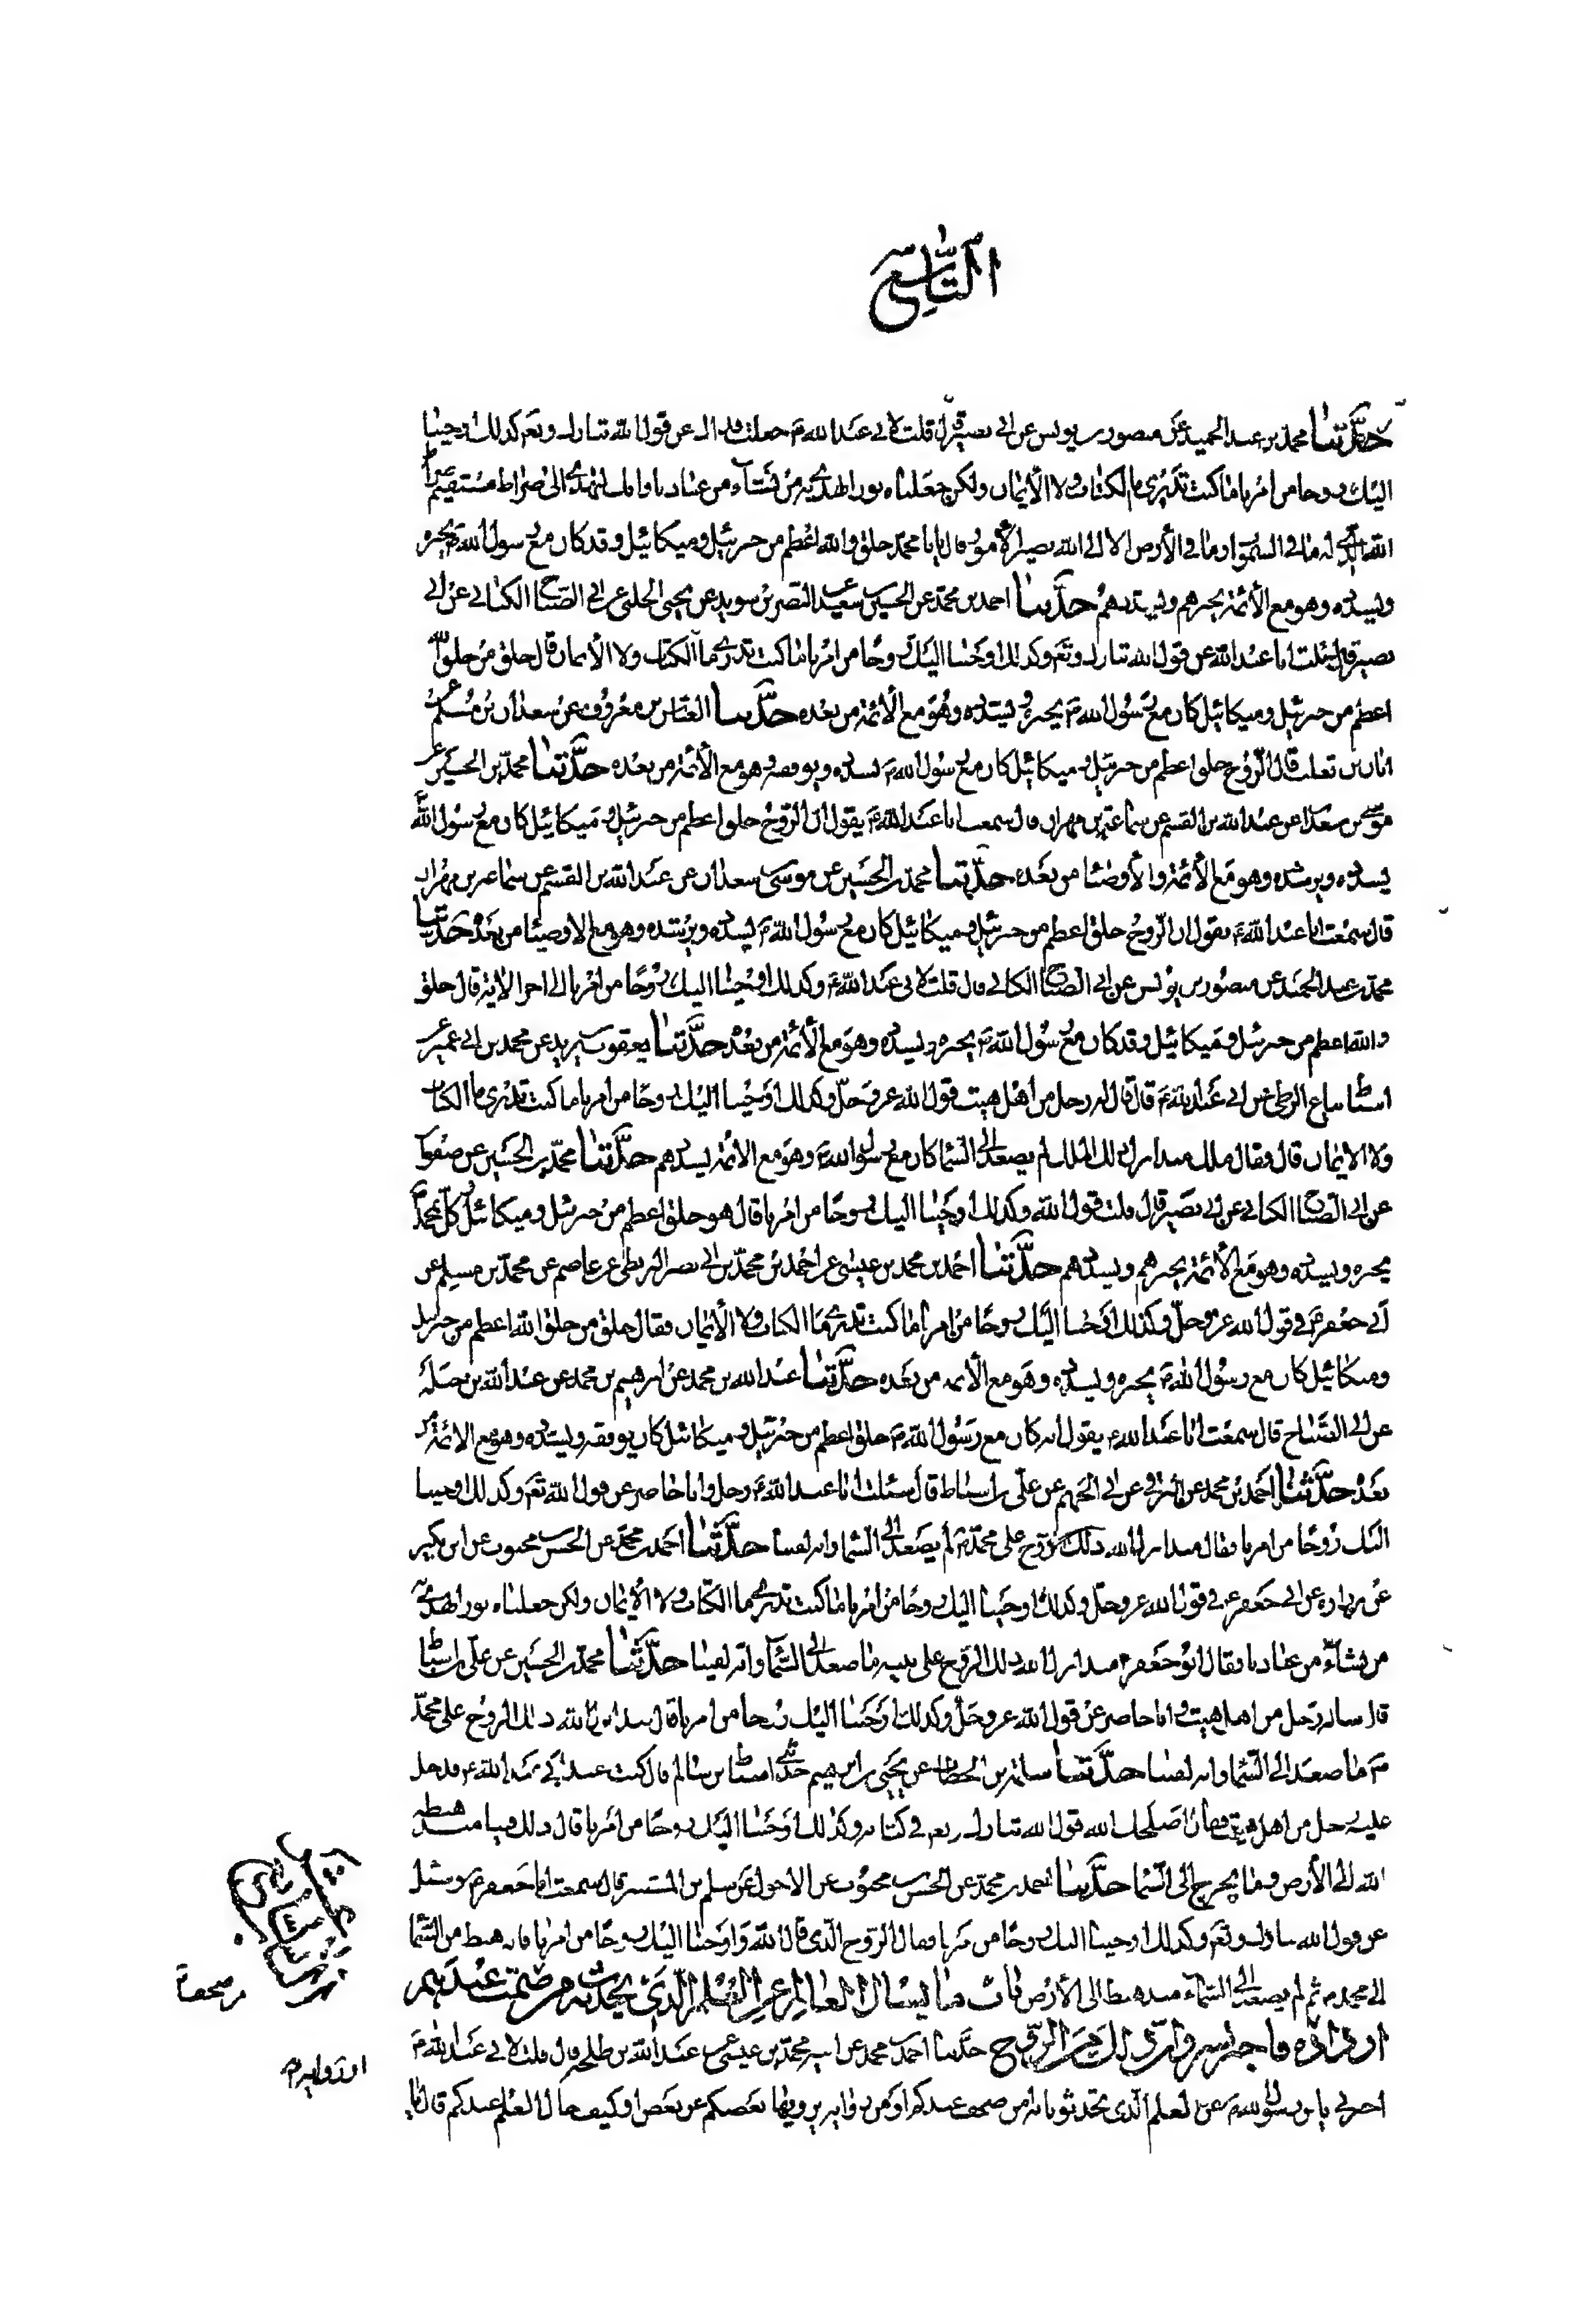 التاسع
حدثنا محمد بن عبد الحميد عن منصور بن يونس عن ابى بصير قال قلت لابى عبد الله ع جعلت فداك عن قول الله تبارك وتع كذلك اوحينا
اليك روحا من امرنا ما كنت تدرى ما الكتاب ولا الأيمان ولكن جعلناه نورا نهدى به من نشآء من عبادنا وانك لتهدى الى صراط مستقيم صراط
الله الذى له ما فى السموات وما فى الأرض الا الى الله تصير الأمور قال يابا محمد خلق والله اعظم من جبرئيل وميكائيل وقد كان مع رسول الله ص يخبره
ويسدده وهو مع الأئمة يخبرهم ويسددهم حدثنا احمد بن محمد عن الحسين بن سعيد عن النضر بن سويد عن يحيى الحلبى عن ابى الصباح الكنانى عن ابى
بصير قال سئلت ابا عبد الله عن قول الله تبارك وتع وكذلك اوحينا اليك روحا من امرنا ما كنت تدرى ما الكتاب ولا الأيمان قال خلق من خلق الله
اعظم من جبرئيل وميكائيل كان مع رسول الله ص يخبره ويسدده وهو مع الأئمة من بعده حدثنا العباس بن معروف عن سعدان بن مسلم عن
ابان بن تغلب قال الروح خلق اعظم من جبرئيل وميكائيل كان مع رسول الله ص يسدده ويوفقه وهو مع الأئمة من بعده حدثنا محمد بن الحسين عن
موسى بن سعدان عن عبد الله بن القسم عن سماعة بن مهران قال سمعت ابا عبد الله ع يقول ان الروح خلق اعظم من جبرئيل وميكائيل كان مع رسول الله
يسدده ويرشده وهو مع الأئمة والأوصيا من بعده حدثنا محمد بن الحسين عن موسى بن سعدان عن عبد الله بن القسم عن سماعة بن مهران
قال سمعت ابا عبد الله ع يقول ان الروح خلق اعظم من جبرئيل وميكائيل كان مع رسول الله ص يسدده ويرشده وهو مع الاوصيا من بعده حدثنا
محمد بن عبد الحميد عن منصور بن يونس عن ابى الصباح الكنانى قال قلت لابى عبد الله ع وكذلك اوحينا اليك روحا من امرنا الى اخر الاية قال خلق
والله اعظم من جبرئيل وميكائيل وقد كان مع رسول الله ص يخبره ويسدده وهو مع الأئمة من بعده حدثنا يعقوب بن يزيد عن محمد بن ابى عمير عن
اسباط بياع الزطى عن ابى عبد الله ع قال قال له رجل من اهل هيت قول الله عز وجل وكذلك اوحينا اليك روحا من امرنا ما كنت تدرى ما الكتاب
ولا الايمان قال فقال ملك منذ انزل الله ذلك الملك لم يصعد الى السما كان مع رسول الله ص وهو مع الأئمة يسددهم حدثنا محمد بن الحسين عن صفوان
عن ابى الصباح الكنانى عن ابى بصير قال قلت قول الله وكذلك اوحينا اليك روحا من امرنا قال هو خلق اعظم من جبرئيل وميكائيل وكل بمحمد
يخبره ويسدده وهو مع الأئمة يخبرهم ويسددهم حدثنا احمد بن محمد بن عيسى عن احمد بن محمد بن ابى نصر البزنطى عن عاصم عن محمد بن مسلم عن
ابى جعفر ع فى قول الله عز وجل وكذلك اوحينا اليك روحا من امرنا ما كنت تدرى ما الكتاب ولا الأيمان فقال خلق من خلق الله اعظم من جبرئيل
وميكائيل كان مع رسول الله ص يخبره ويسدده وهو مع الأئمة من بعده حدثنا عبد الله بن محمد عن ابرهيم بن محمد عن عبد الله بن جبلة
عن ابى الصباح قال سمعت ابا عبد الله ع يقول انه كان مع رسول الله ص خلق اعظم من جبرئيل وميكائيل كان يوفقه ويسدده وهو مع الائمة من
بعده حدثنا احمد بن محمد عن البرقى عن ابى الجهم عن على بن اسباط قال سئلت ابا عبد الله ع رجل وانا حاضر عن قول الله تع وكذلك اوحينا
اليك روحا من امرنا فقال منذ انزل الله ذلك الروح على محمد ص لم يصعد الى السما وانه لفينا حدثنا احمد بن محمد عن الحسن بن محبوب عن ابن بكير
عن زرارة عن ابى جعفر ع فى قول الله عز وجل وكذلك اوحينا اليك روحا من امرنا ما كنت تدرى ما الكتاب ولا الأيمان ولكن جعلناه نورا نهدى به
من نشاء من عبادنا فقال ابو جعفر ع منذ انزل الله ذلك الروح على نبيه ما صعد الى السمآ وانه لفينا حدثنا محمد بن الحسين عن على بن اسباط
قال ساله رجل من اهل هيت وانا حاضر عن قول الله عز وجل وكذلك اوحينا اليك روحا من امرنا قال منذ انزل الله ذلك الروح على محمد
ص ما صعد الى السما وانه لفينا حدثنا سلمة بن الخطاب عن يحيى بن ابرهيم حدثنى اسباط بن سالم قال كنت عند ابى عبد الله ع فدخل
عليه رجل من اهل هيت فقال اصلحك الله قول الله تبارك وتع فى كتابه وكذلك اوحينا اليك روحا من امرنا قال ذلك فينا منذ هبطه
الله الى الأرض وما يخرج الى السما حدثنا احمد بن محمد عن الحسن بن محبوب عن الاحول عن سلم بن المستنير قال سمعت ابا جعفر ع وسئل
عن قول الله تبارك وتع وكذلك اوحينا اليك روحا من امرنا فقال الروح الذى قال الله واوحينا اليك روحا من امرنا فانه هبط من السما
الى محمد ص ثم لم يصعد الى السمآء منذ هبط الى الأرض باب ما يسال العالم عن العلم الذى يحدث به من صحف عندهم
او زادوه فاخبر بسر وان ذلك من الروح حدثنا احمد بن محمد عن ابيه محمد بن عيسى عن عبد الله بن طلحه قال قلت لابى عبد الله ع
اخبرنى يابن رسول الله ص عن العلم الذى تحدثونا به من صحف عندكم او من رواية يرويها بعضكم عن بعض او كيف حال العلم عندكم قال يا
من صحف
او رواية